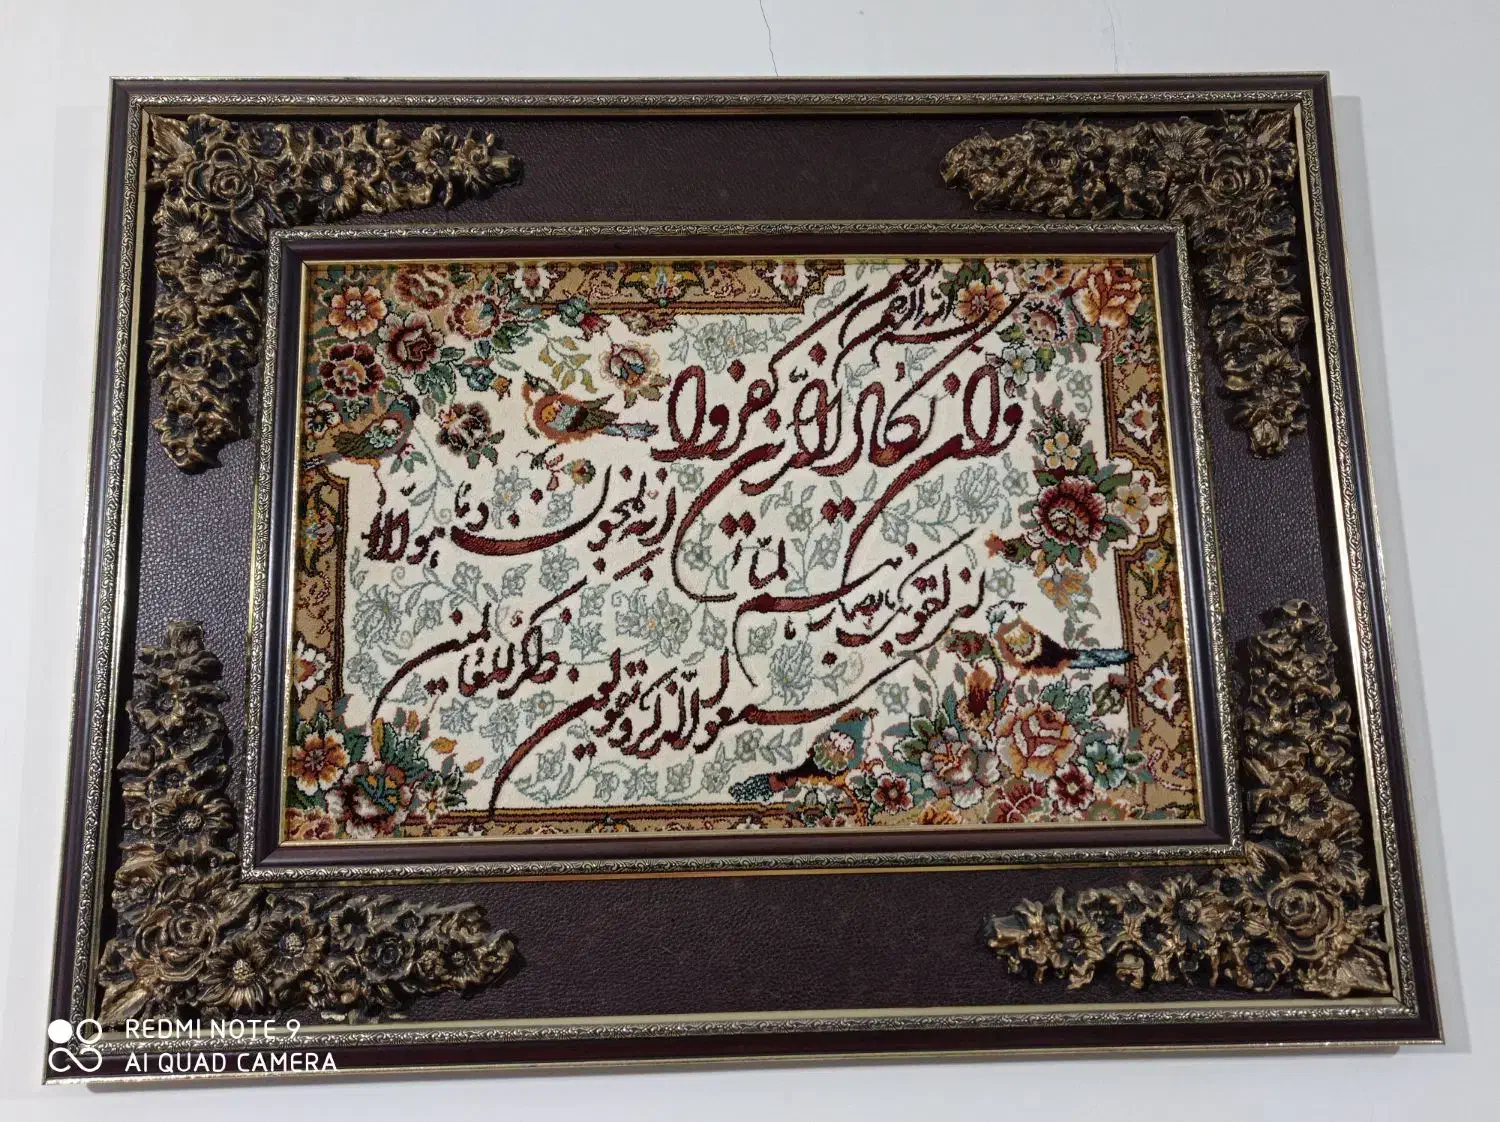 بسم الله الرحمن الرحیم
وان یکاد الذین کفروا
لیزلقونک بابصارهم لما سمعوا الذکر و یقولون
انه لمجنون و ما هو الا
ذکر للعالمین
REDMI NOTE 9
AI QUAD CAMERA